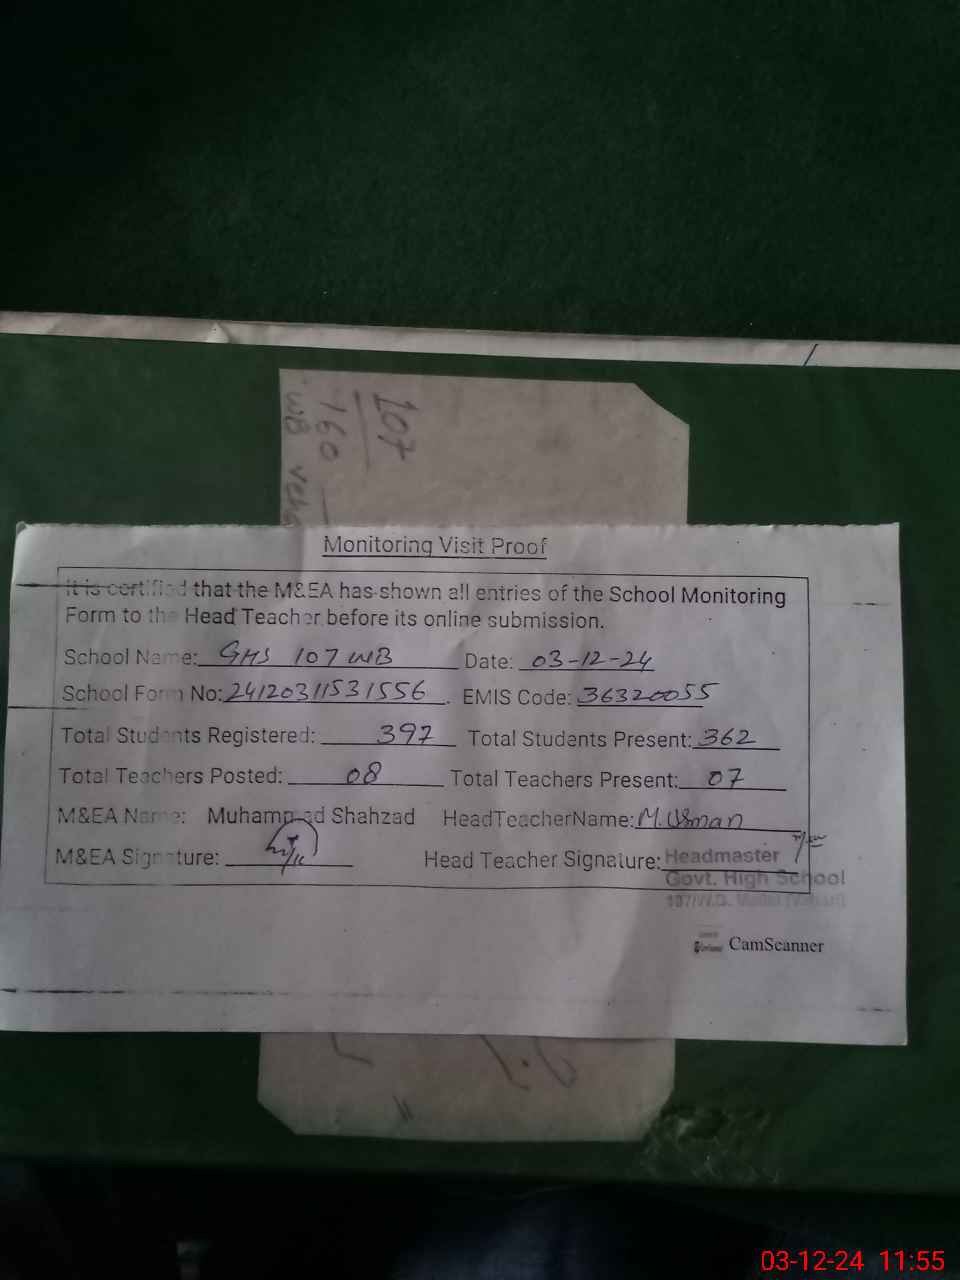 107
160
WB
Monitoring Visit Proof
It is certified that the M&EA has shown all entries of the School Monitoring
Form to the Head Teacher before its online submission.
School Name: GHS 107 WB Date: 03-12-24
School Form No: 24120311531556 EMIS Code: 36320055
Total Students Registered: 397 Total Students Present: 362
Total Teachers Posted: 08 Total Teachers Present: 07
M&EA Name: Muhammad Shahzad HeadTeacherName: M. Usman
M&EA Signature: Head Teacher Signature: Headmaster
Govt. High School
CamScanner
03-12-24 11:55